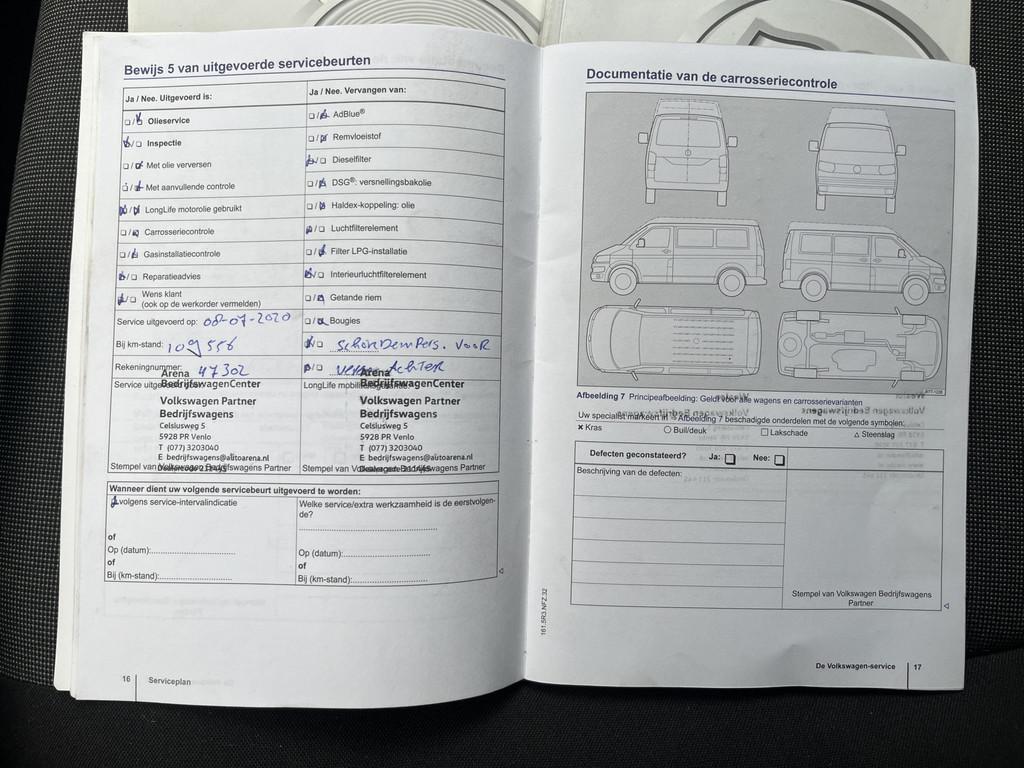 Bewijs 5 van uitgevoerde servicebeurten
Ja / Nee. Uitgevoerd is:
Olieservice
Inspectie
Met olie verversen
Met aanvullende controle
LongLife motorolie gebruikt
Carrosseriecontrole
Gasinstallatiecontrole
Reparatieadvies
Wens klant
(ook op de werkorder vermelden)
Service uitgevoerd op: 08-07-2020
Bij km-stand: 109556
Rekeningnummer: 47302
Service uitgevoerd
Arena
BedrijfswagenCenter
Volkswagen Partner
Bedrijfswagens
Celsiusweg 5
5928 PR Venlo
T (077) 3203040
E bedrijfswagens@autoarena.nl
Stempel van Volkswagen Bedrijfswagens Partner
Ja / Nee. Vervangen van:
AdBlue®
Remvloeistof
Dieselfilter
DSG®: versnellingsbakolie
Haldex-koppeling: olie
Luchtfilterelement
Filter LPG-installatie
Interieurluchtfilterelement
Getande riem
Bougies
SchokDempers. VooR
AchTeR
LongLife
Arena
BedrijfswagenCenter
Volkswagen Partner
Bedrijfswagens
Celsiusweg 5
5928 PR Venlo
T (077) 3203040
E bedrijfswagens@autoarena.nl
Stempel van Volkswagen Bedrijfswagens Partner
Wanneer dient uw volgende servicebeurt uitgevoerd te worden:
volgens service-intervalindicatie
of
Op (datum):
of
Bij (km-stand):
Welke service/extra werkzaamheid is de eerstvolgen-
de?
Op (datum):
of
Bij (km-stand):
16 Serviceplan
Documentatie van de carrosseriecontrole
Afbeelding 7 Principeafbeelding: Geldt voor alle wagens en carrosserievarianten
Uw specialist markeert in Afbeelding 7 beschadigde onderdelen met de volgende symbolen:
Kras
Buil/deuk
Lakschade
Steenslag
Defecten geconstateerd? Ja: Nee:
Beschrijving van de defecten:
Stempel van Volkswagen Bedrijfswagens
Partner
161.5R3.NFZ.32
De Volkswagen-service 17